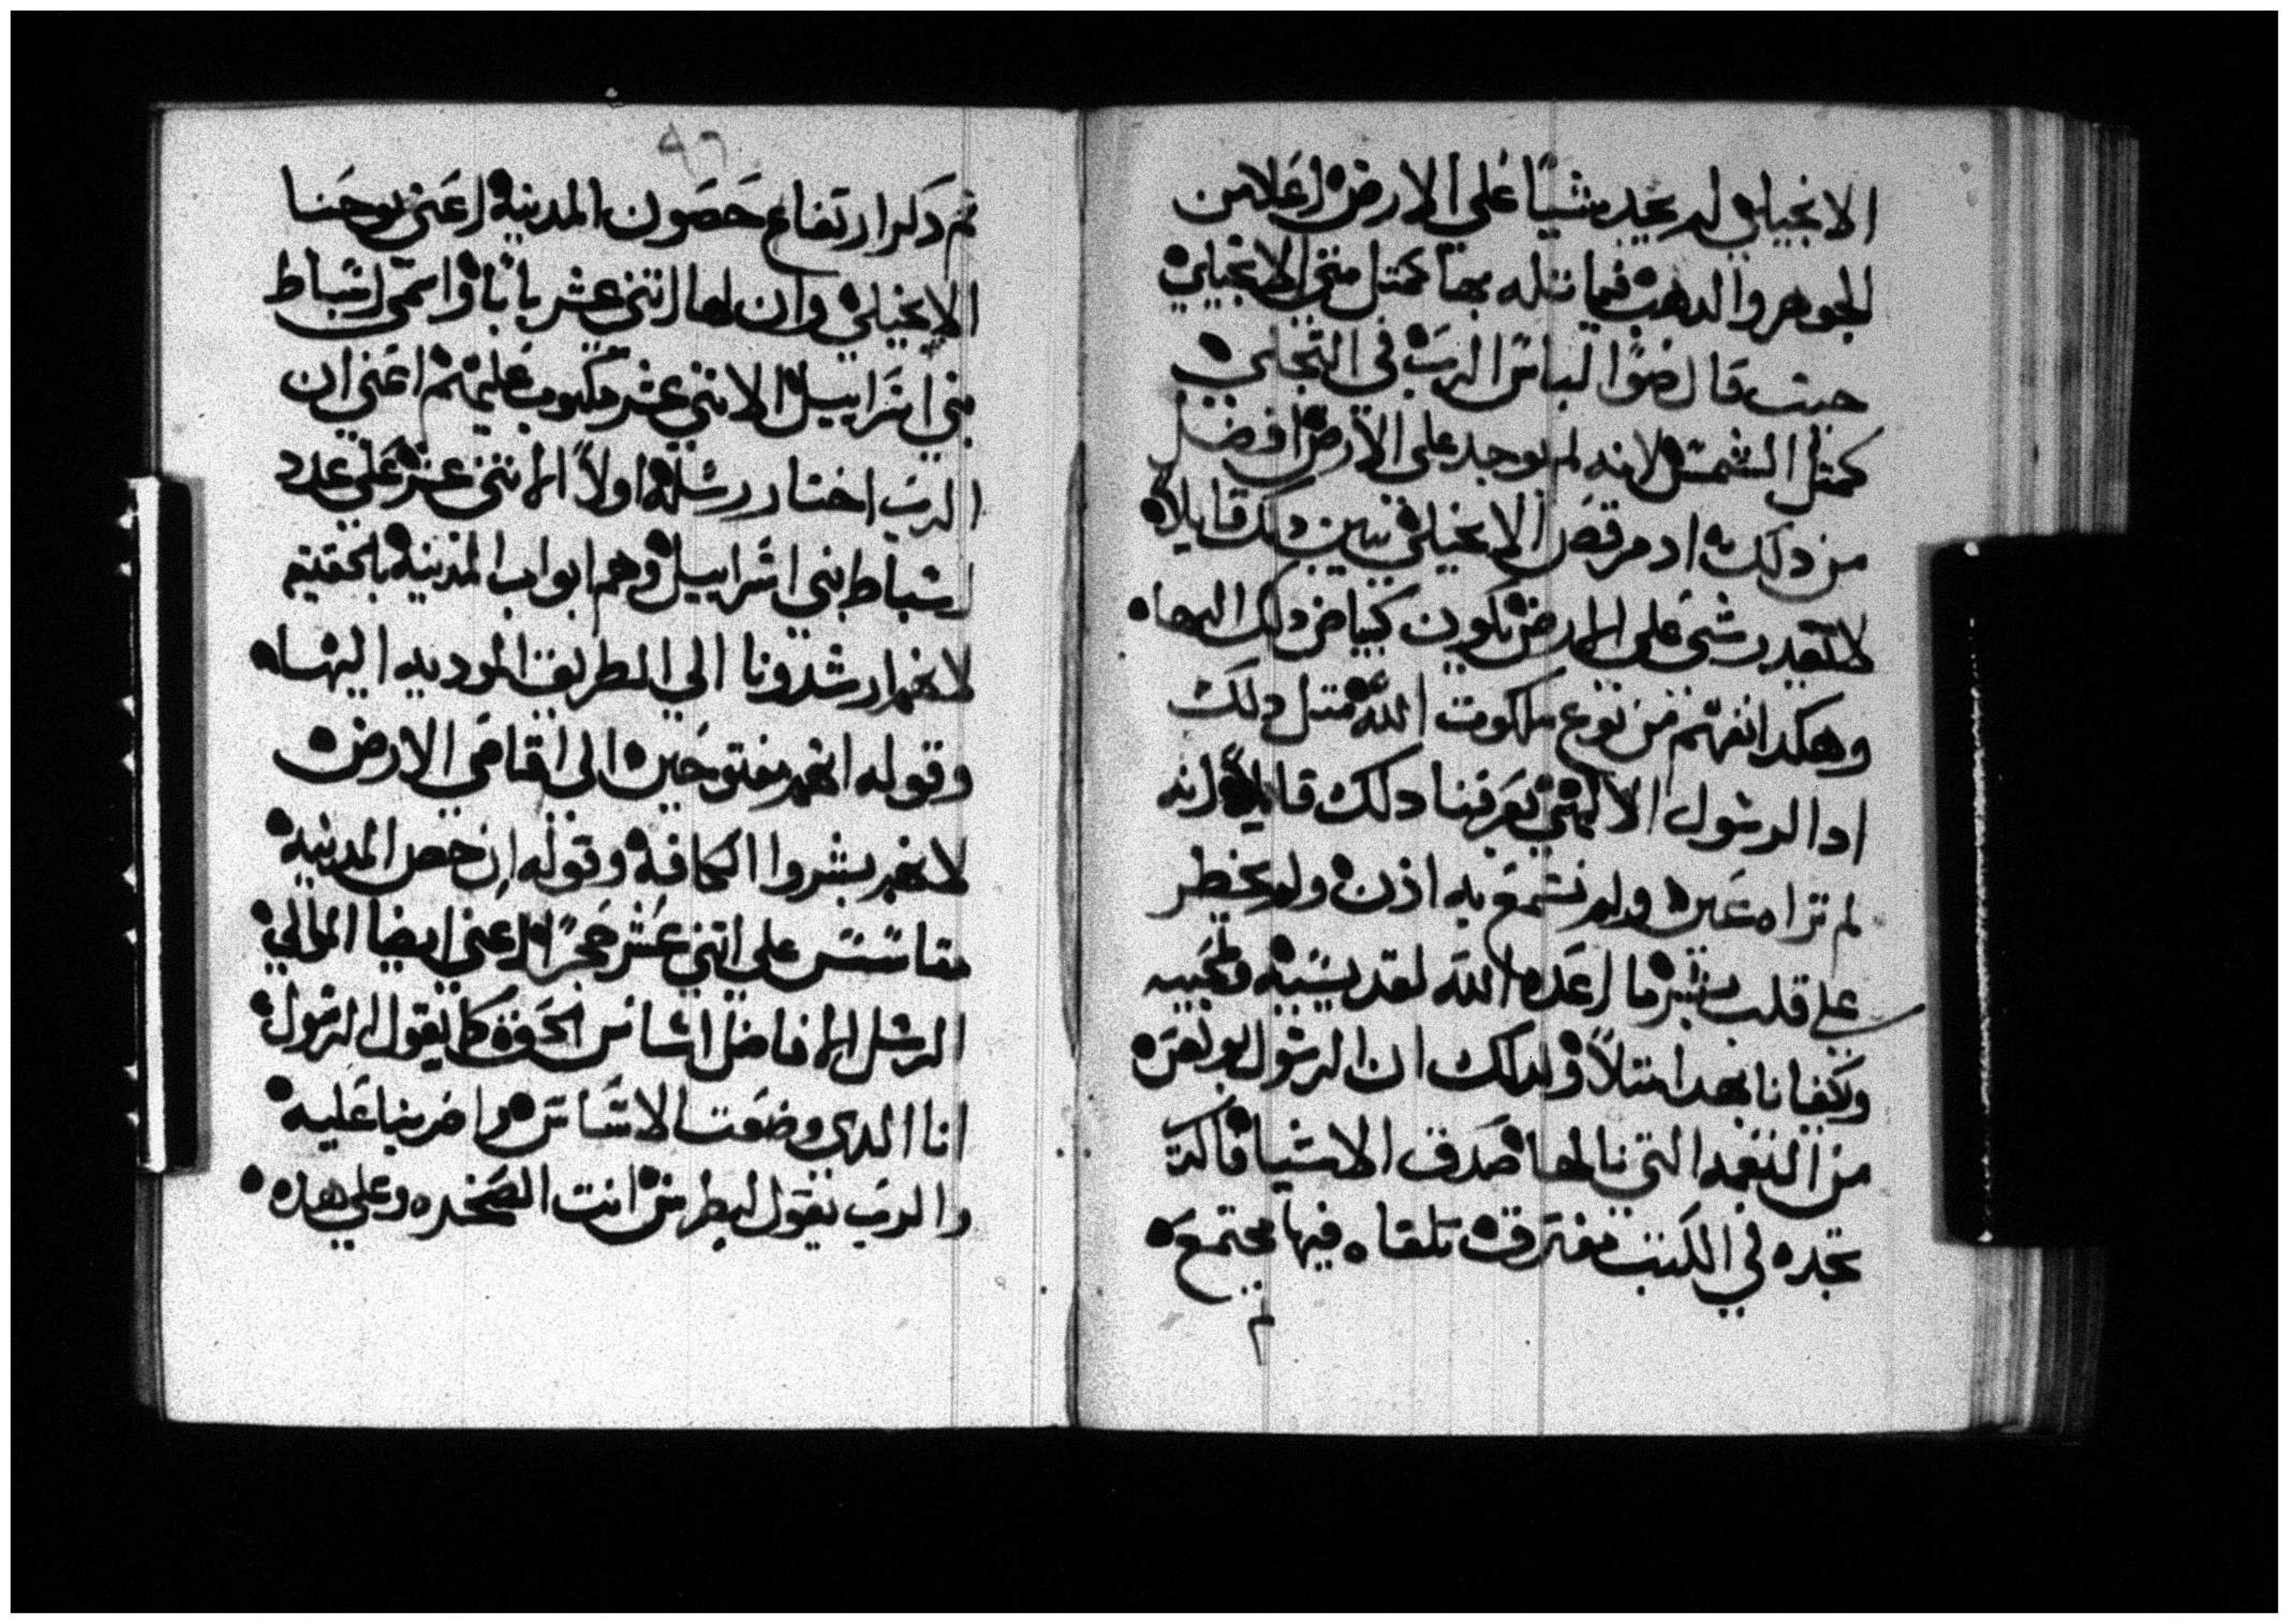 الانجيلي لم يجد شيًا على الارض اعلا من
الجوهر والدهب فيما تله بها كمتل متى الانجيلي
حيت قال ضوا لباس الرب في التجلي
كمثل الشمس لانه لم يوجد على الارض افضل
من دلك اد مرقص الانجيلي يبين دلك قايلا
لا يقدر شي على الارض يكون كبياض دلك البها
وهكدا نفهم من نوع ملكوت الله متل دلك
ادا الرسول الالهي يعرفنا دلك قايلا انه
لم تراه عين ولم تسمع به اذن ولم يخطر
على قلب بشر ما اعده الله لقديسيه ومحبيه
وكفانا بهدا متلا ولدلك ان الرسول بولص
من النعمه التي نالها صدف الاشيا فالدي
تجده في الكتب مفترق تلقاه فيها مجتمع
٩٦
تم دكر ارتفاع حصون المدينه اعني يوحنا
الانجيلي وان لها اتني عشر بابا واسمى اسباط
بني اسراييل الاتني عشر مكتوب عليهم اعني ان
الرب اختار رسله اولا الاتني عشر على عدد
اسباط بني اسراييل وهم ابواب المدينه بالحقيقه
لانهم ارشدونا الى الطريق الموديه اليها
وقوله انهم مفتوحين الى اقاصي الارض
لانهم بشروا الكافه وقوله ان حصن المدينه
متاسس على اتني عشر حجرا اعني ايضا
الرسل الافاضل اساس الحق كما يقول الرسول
انا الدي وضعت الاساس واخر بنا عليه
والرب يقول لبطرس انت الصخره وعلى هده